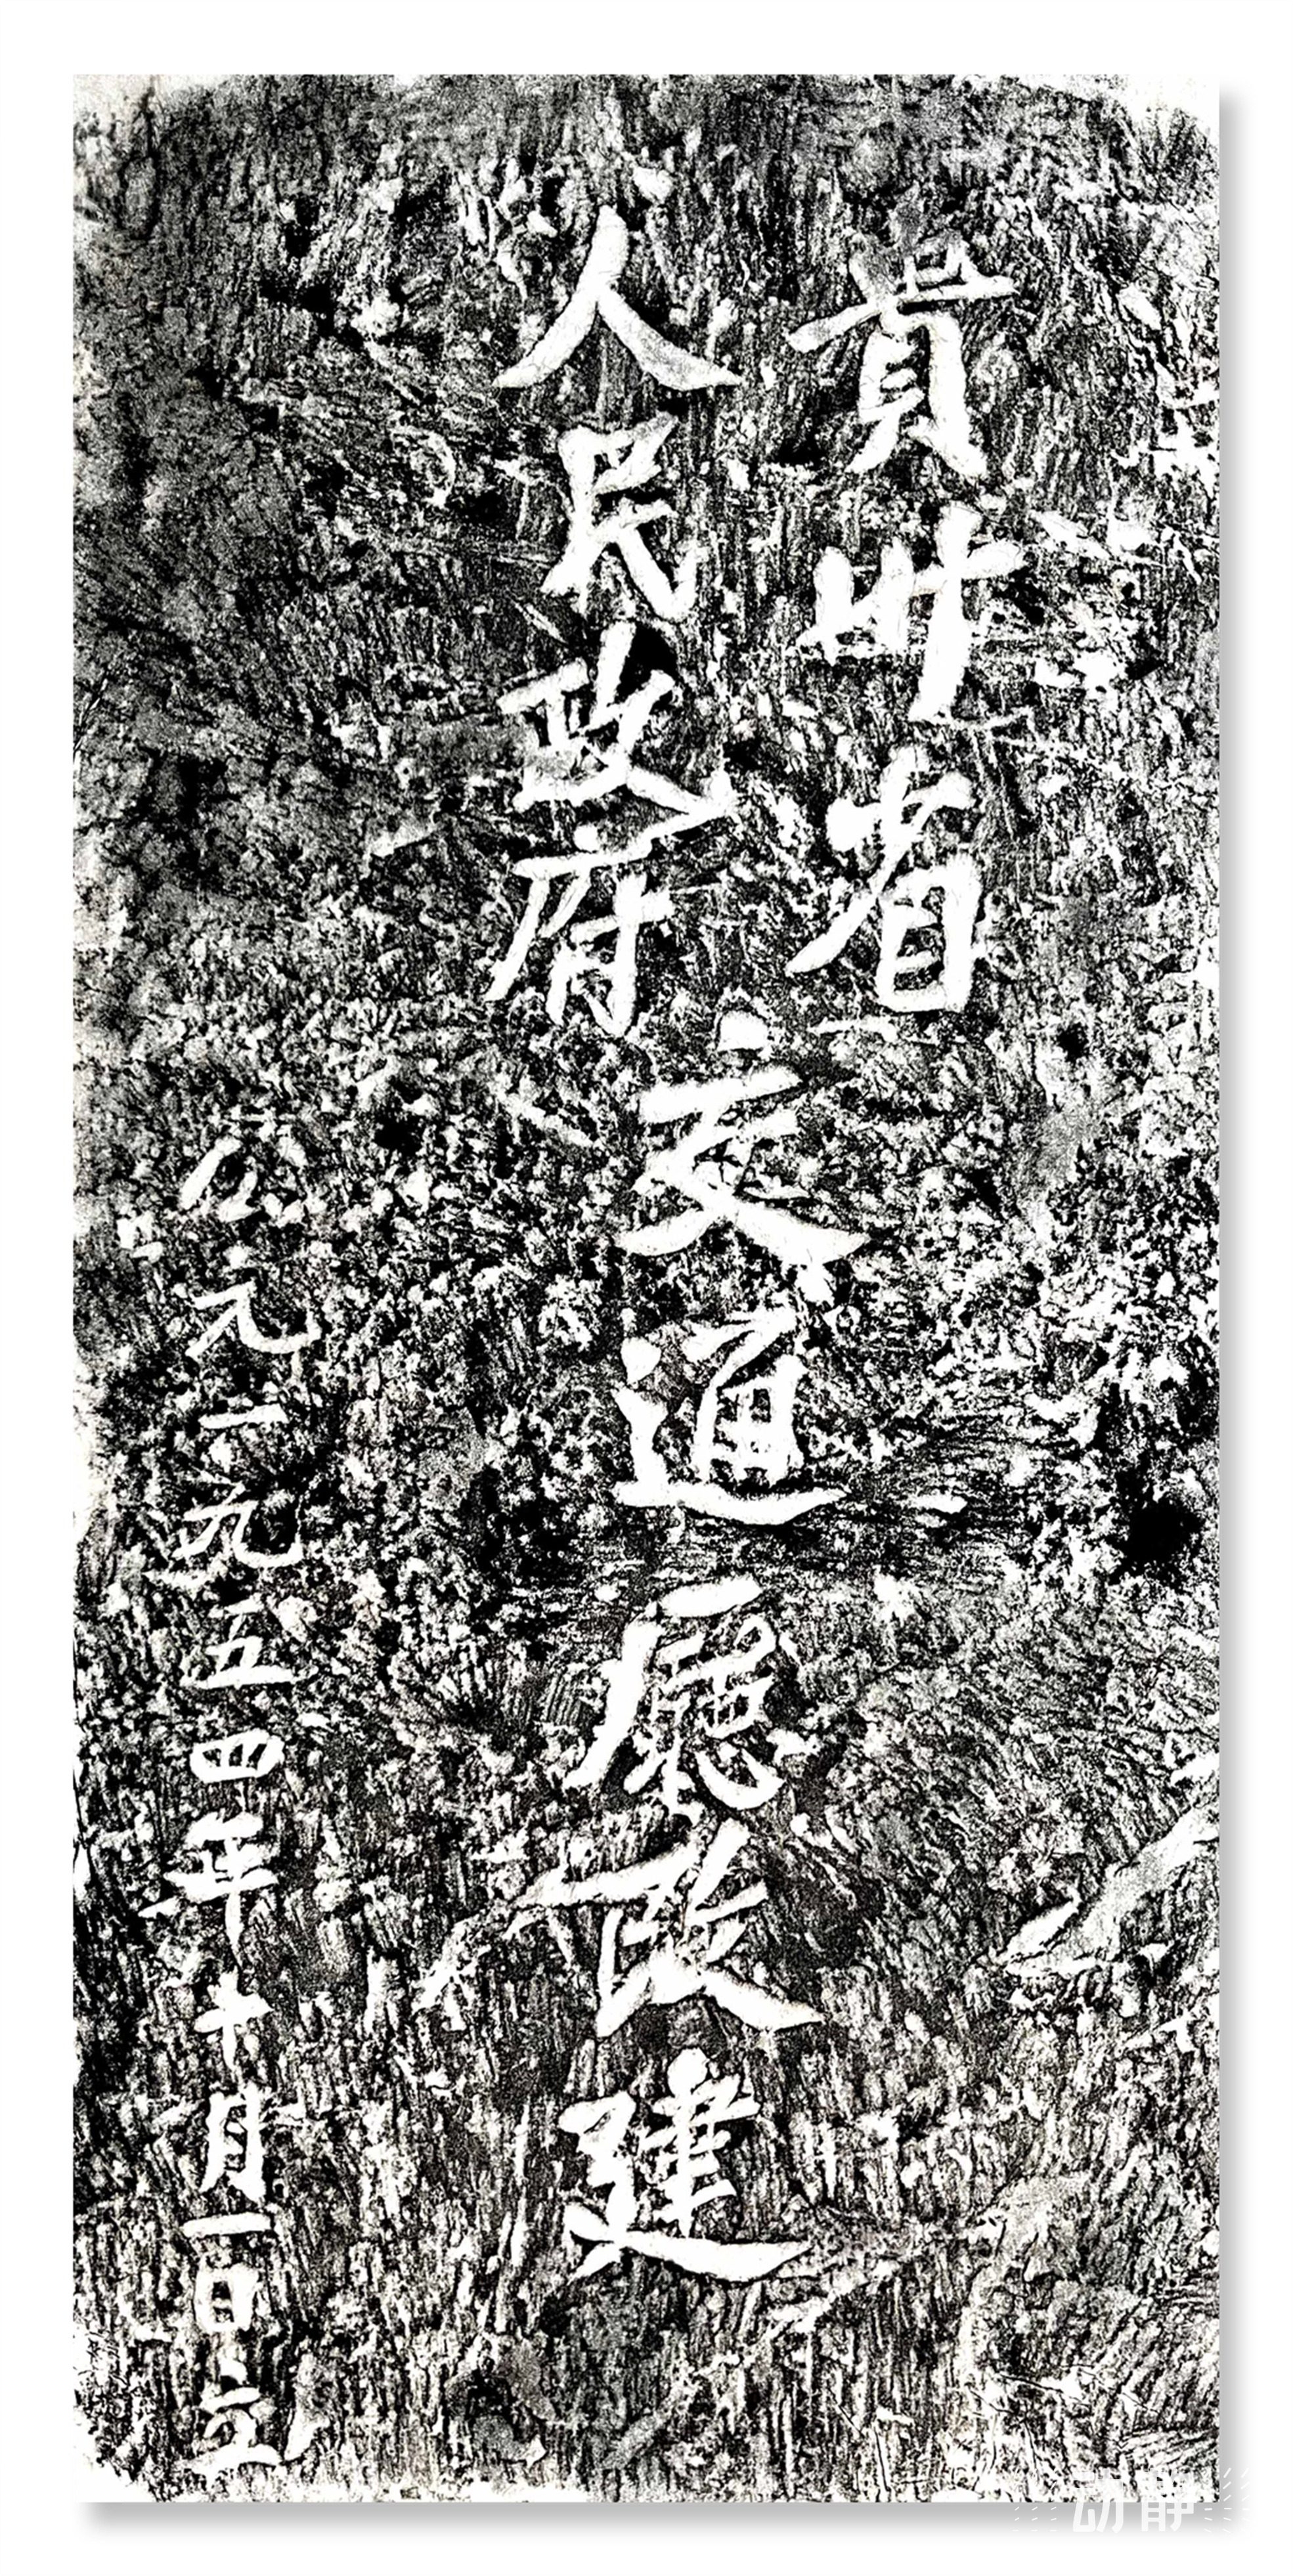 貴州省
人民政府
交通廳改建
公元一九五四年十月一日立
动静